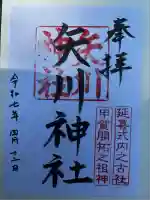 奉拝
延喜式内之古社
甲賀開拓之祖神
矢川神社
矢川神社
令和七年四月十三日